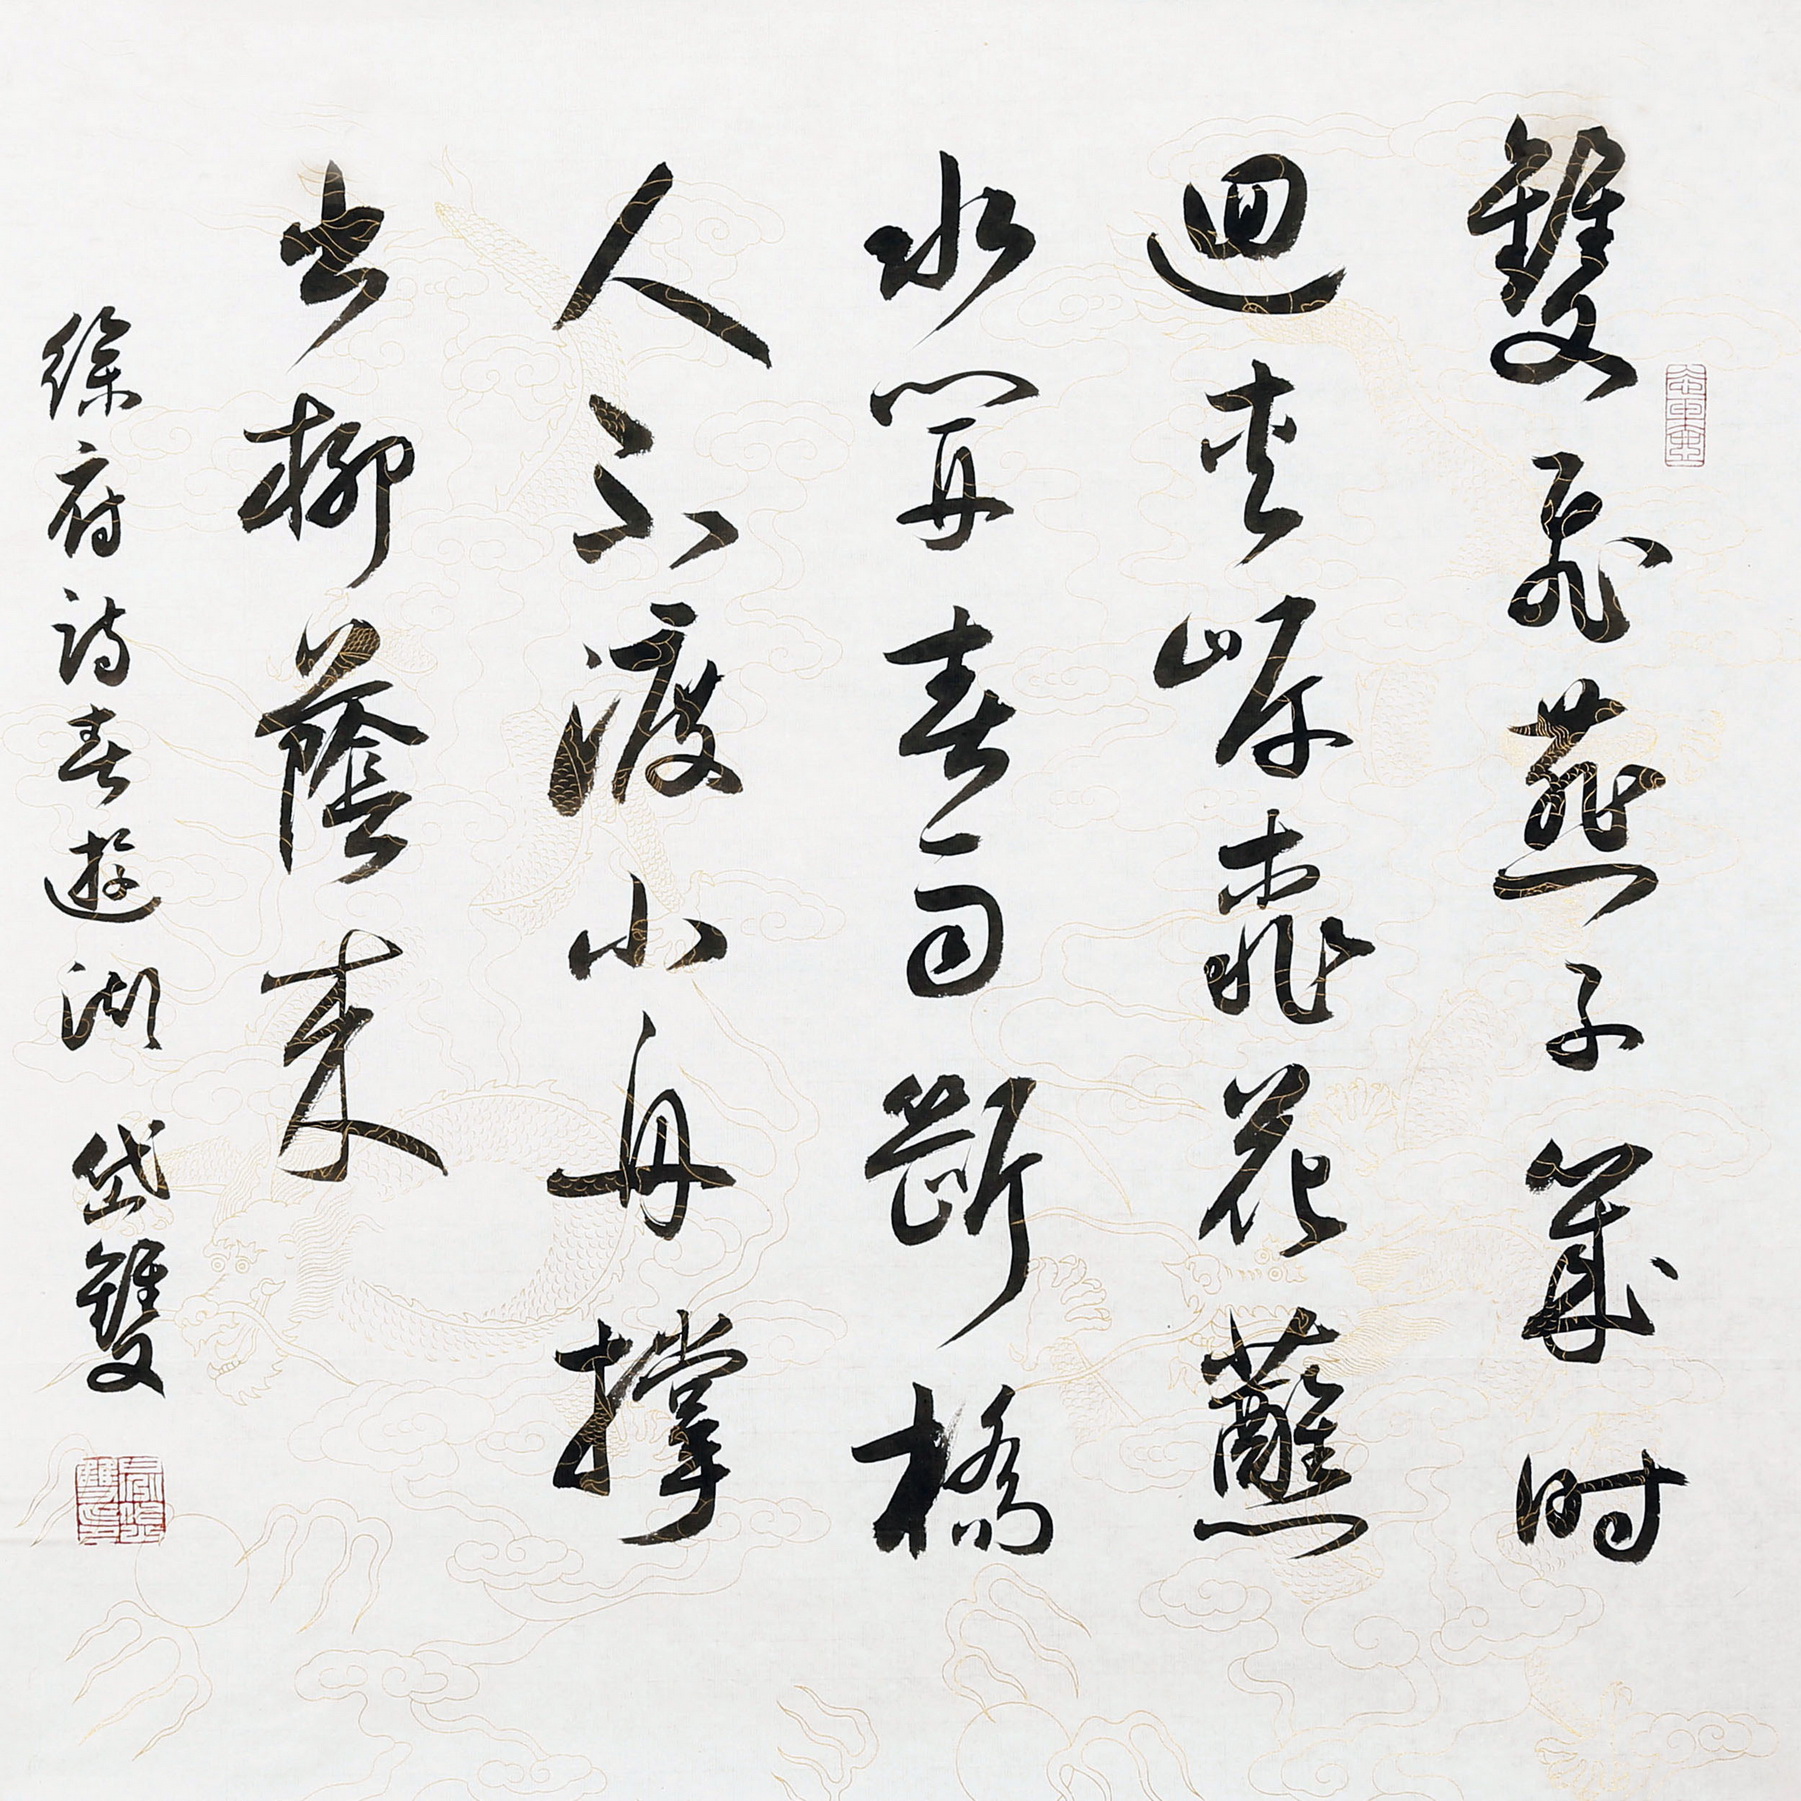 雙飛燕子幾时
迴夾岸桃花蘸
水開春雨斷橋
人不渡小舟撑
出柳蔭来
徐府诗春遊湖 岱雙